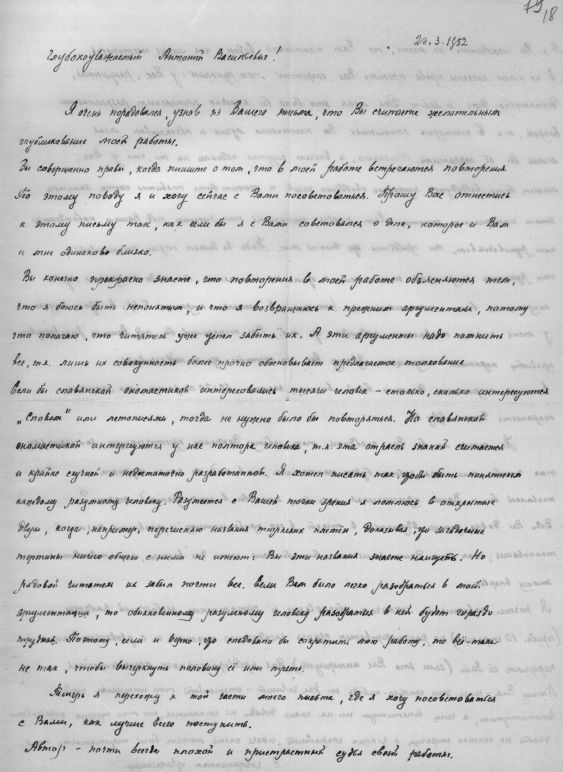 79/18
23.3.1952
Глубокоуважаемый Антоний Васильевич!
Я очень порадовался, узнав из Вашего письма, что Вы считаете желательным
опубликование моей работы.
Вы совершенно правы, когда пишите о том, что в моей работе встречаются повторения.
По этому поводу я и хочу сейчас с Вами посоветоваться. Прошу Вас отнестись
к этому письму так, как если бы я с Вами советовался о деле, которое и Вам
и мне одинаково близко.
Вы конечно прекрасно знаете, что повторения в моей работе объясняются тем,
что я боюсь быть непонятым, и что я возвращаюсь к прежним аргументам, потому
что полагаю, что читатель уже успел забыть их. А эти аргументы надо помнить
все, т.к. лишь их совокупность более прочно обосновывает предлагаемое толкование
Если бы славянской ономастикой интересовались тысячи человек – столько, сколько интересуются
„Словом" или летописями, тогда не нужно было бы повторяться. Но славянской
ономастикой интересуются у нас полтора человека, т.к. эта отрасль знаний считается
и крайне скучной и недостаточно разработанной. Я хотел писать так, чтобы быть понятным
каждому разумному человеку. Разумеется с Вашей точки зрения я ломлюсь в открытые
двери, когда, например, перечисляю названия тюркских племён, доказывая, что загадочные
термины ничего общего с ними не имеют: Вы эти названия знаете наизусть. Но
рядовой читатель их забыл почти все. Если Вам было легко разобраться в моей
аргументации, то обыкновенному разумному человеку разобраться в ней будет гораздо
труднее. Поэтому, если и верно, что следовало бы сократить мою работу, то всё-таки
не так, чтобы вычеркнуть половину её или треть.
Теперь я перехожу к той части моего письма, где я хочу посоветоваться
с Вами, как лучше всего поступить.
Автор – почти всегда плохой и пристрастный судья своей работы.